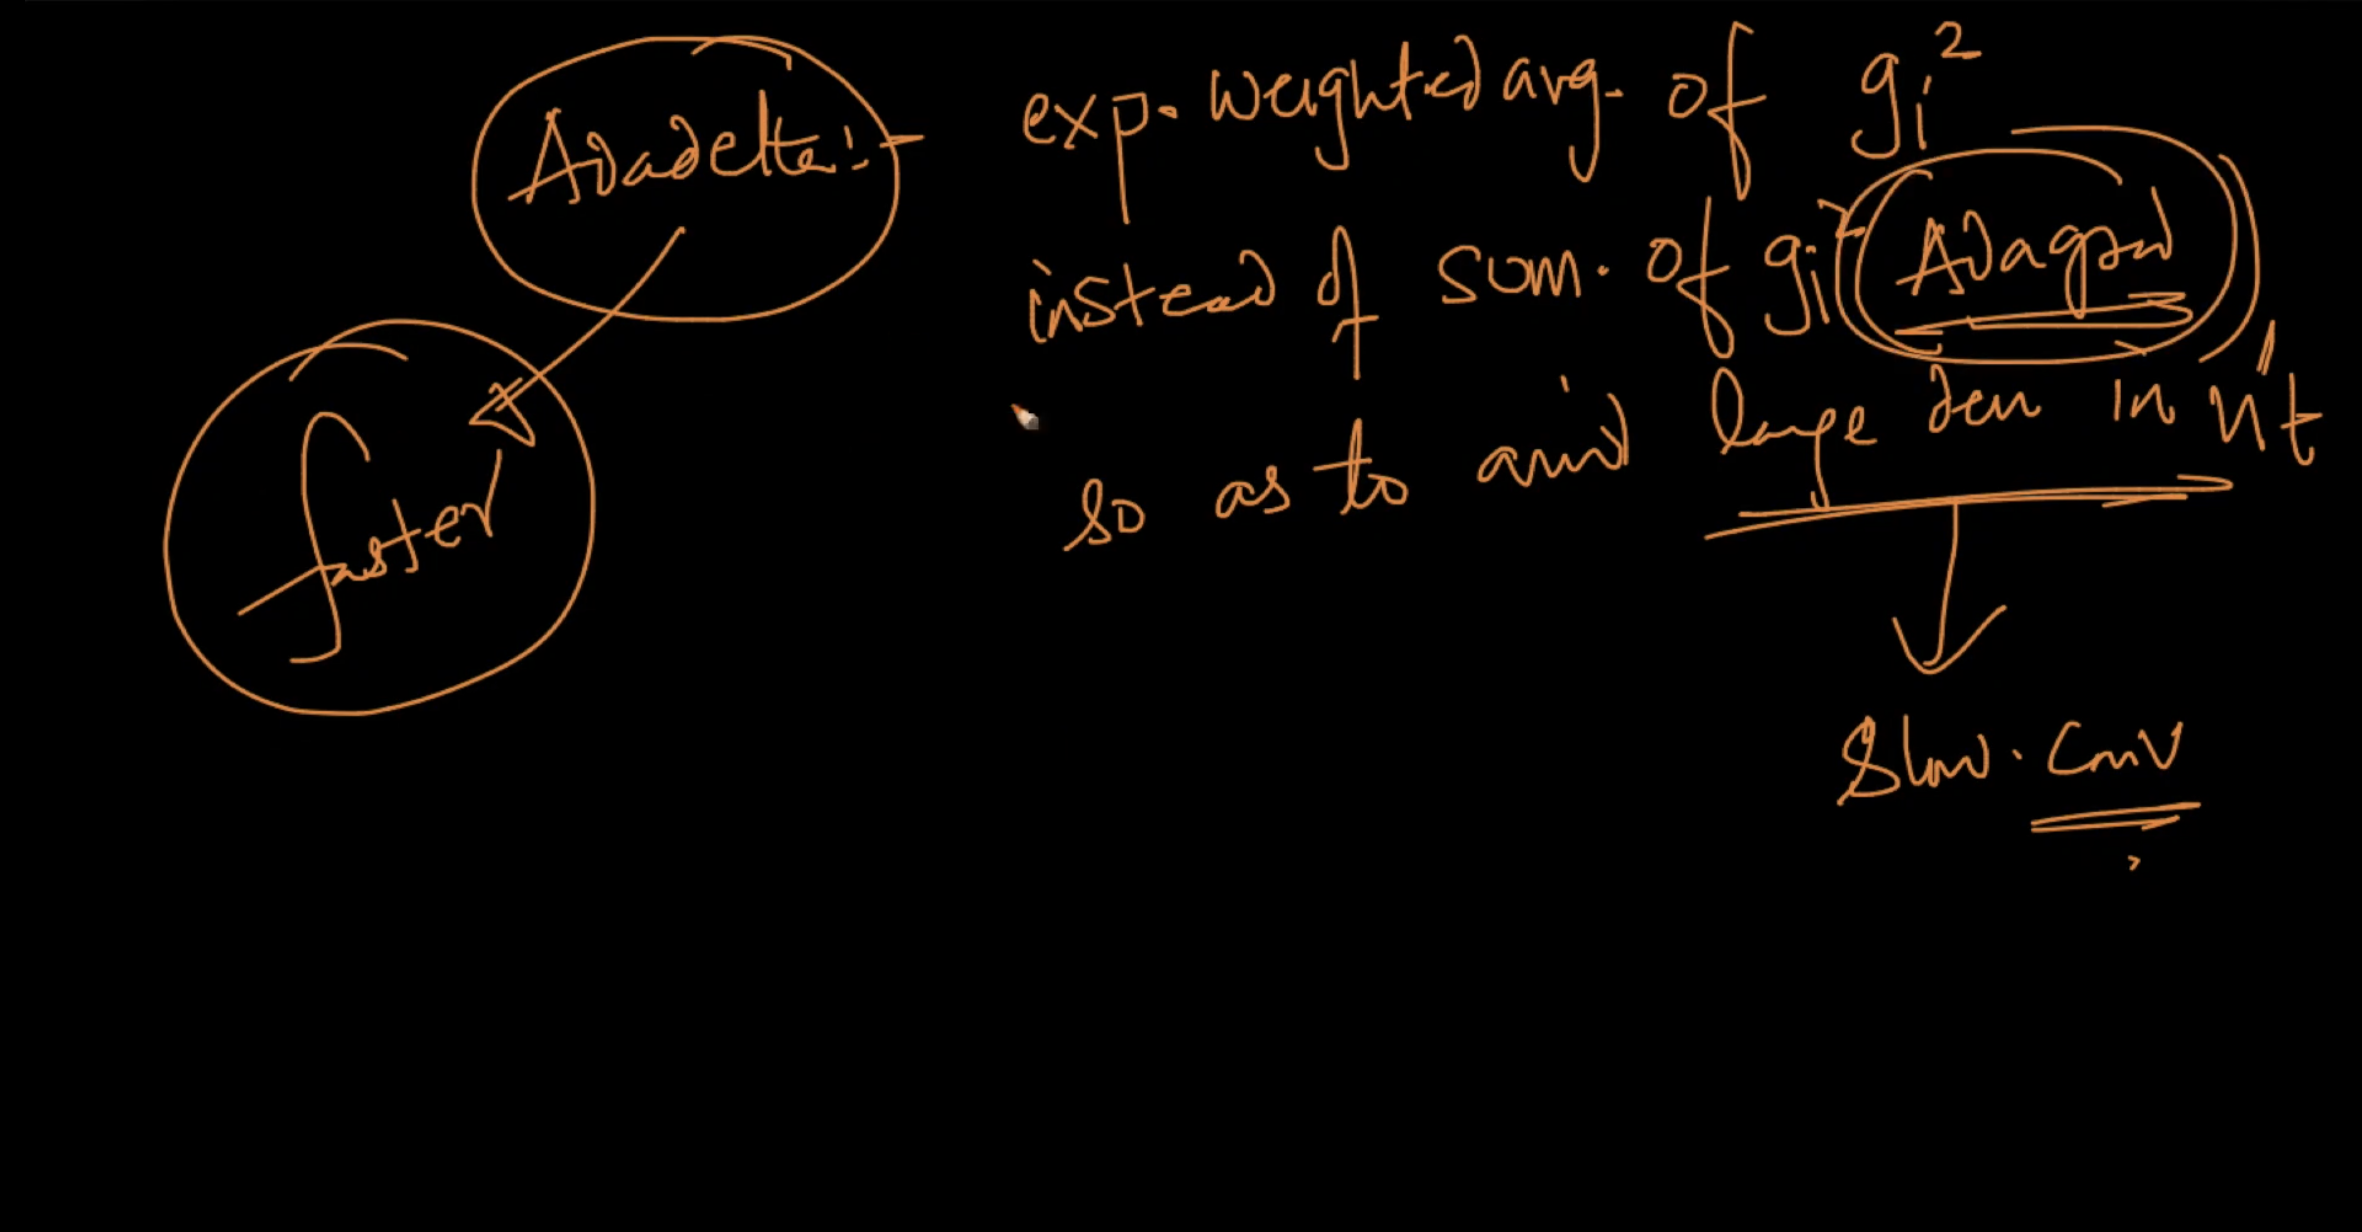 Adadelta:- exp. weighted avg. of gi²
instead of sum. of gi² (Adagrad)
so as to avoid large den in η't
faster
Slow. Conv